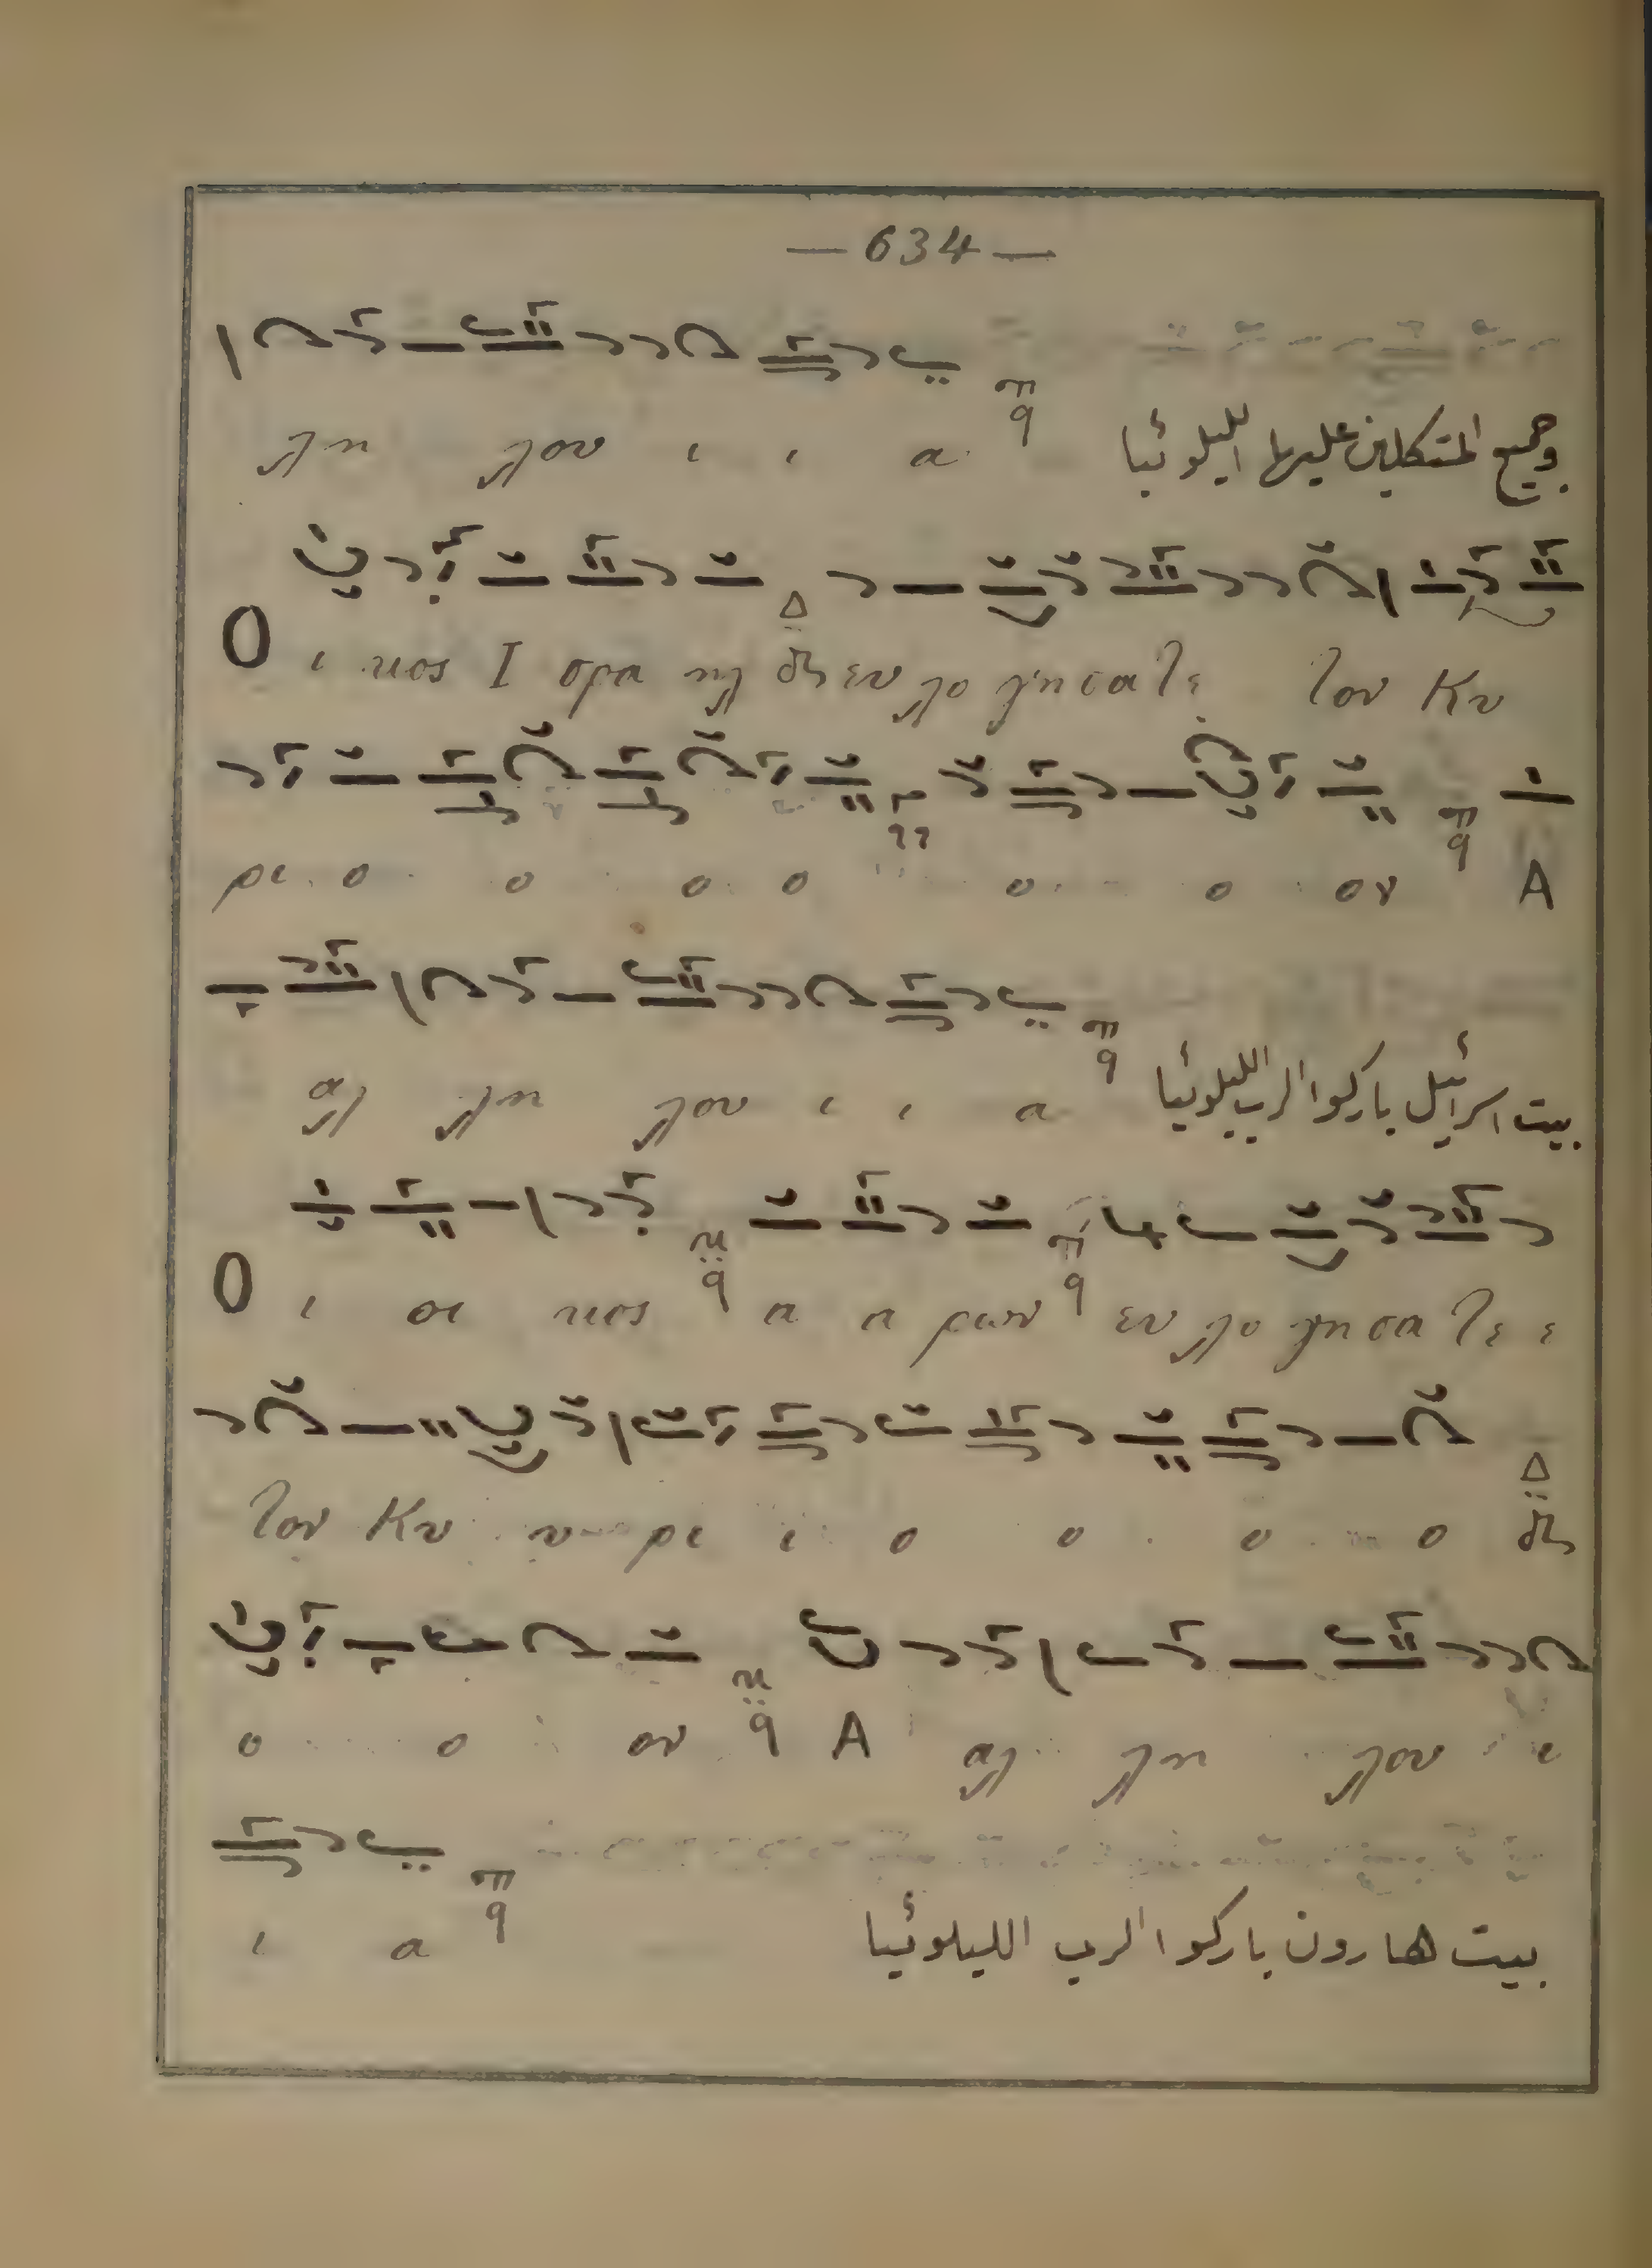 — 634 —
λη λου ι ι α وجميع المتكلين عليها الليلوئيا
Ο ι κος Ι σρα ηλ δι ευ λο γησατε τον Κυ
ρι ο ο ο ο ο ο ον Α
αλ λη λου ι ι α بيت اسرائيل باركوا الرب الليلوئيا
Ο ι οι κος α α ρων ευ λο γησατε ε
τον Κυ υ ρι ι ο ο ο ο δι
ο ο ον Α αλ λη λου ι
ι α بيت هارون باركوا الرب الليلوئيا